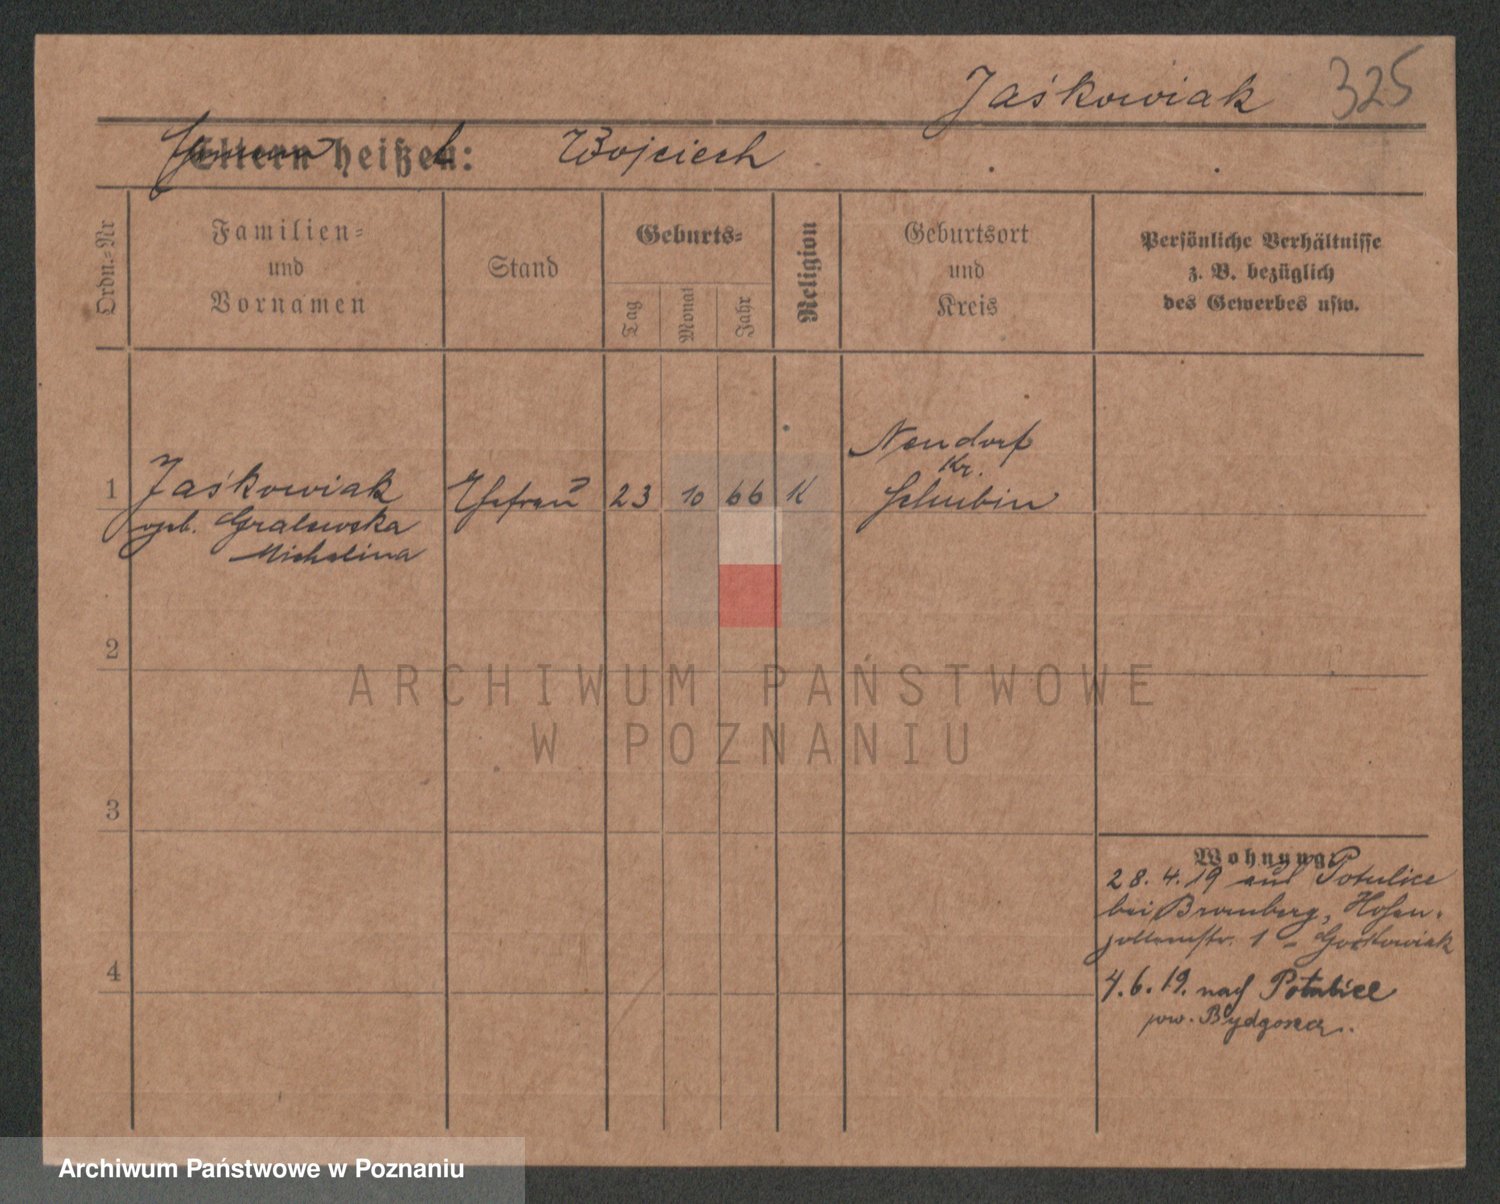 Jaśkowiak 325
Eltern heißen: Wojciech
Ordn.-Nr
Familien-
und
Vornamen
Stand
Geburts-
Tag
Monat
Jahr
Religion
Geburtsort
und
Kreis
Persönliche Verhältnisse
z. B. bezüglich
des Gewerbes usw.
1 Jaśkowiak Ehefrau 23 10 66 K
geb. Gralewska
Michalina
Neudorf
Kr.
Schubin
2
3
4
Wohnung:
28.4.19 aus Potulice
bei Bromberg, Hohen-
zollernstr. 1 - Goćkowiak
4.6.19. nach Potulice
pow. Bydgoszcz.
ARCHIWUM PAŃSTWOWE
W POZNANIU
Archiwum Państwowe w Poznaniu